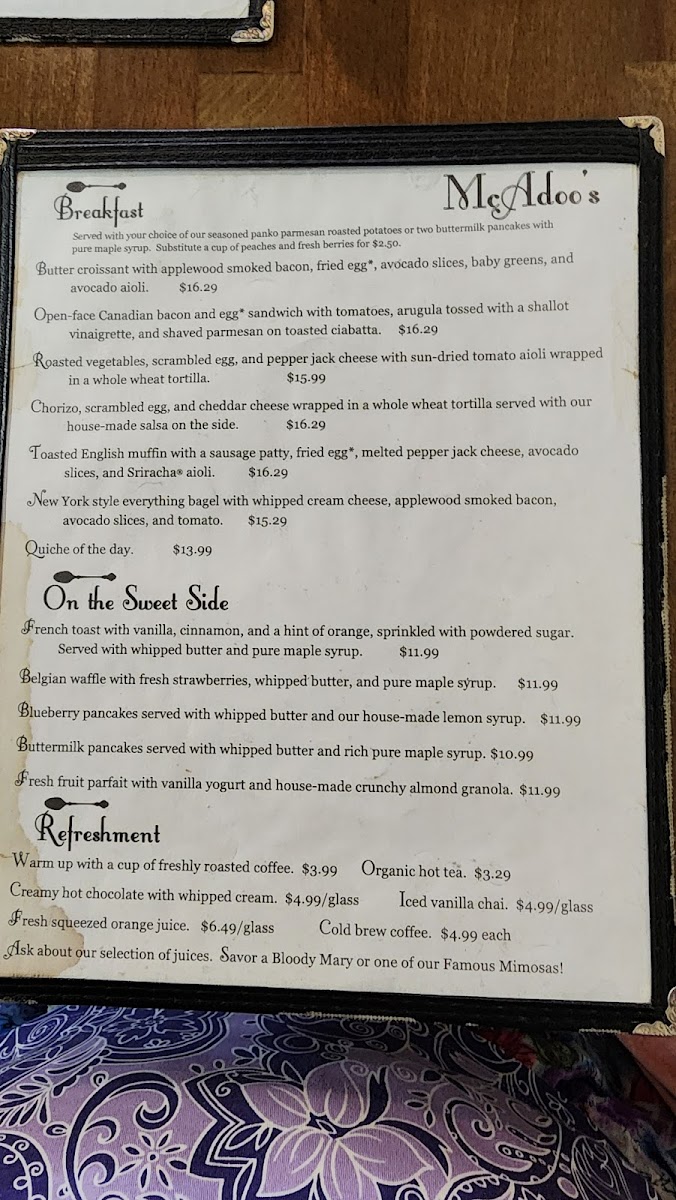 McAdoo's
Breakfast
Served with your choice of our seasoned panko parmesan roasted potatoes or two buttermilk pancakes with
pure maple syrup. Substitute a cup of peaches and fresh berries for $2.50.
Butter croissant with applewood smoked bacon, fried egg*, avocado slices, baby greens, and
avocado aioli. $16.29
Open-face Canadian bacon and egg* sandwich with tomatoes, arugula tossed with a shallot
vinaigrette, and shaved parmesan on toasted ciabatta. $16.29
Roasted vegetables, scrambled egg, and pepper jack cheese with sun-dried tomato aioli wrapped
in a whole wheat tortilla. $15.99
Chorizo, scrambled egg, and cheddar cheese wrapped in a whole wheat tortilla served with our
house-made salsa on the side. $16.29
Toasted English muffin with a sausage patty, fried egg*, melted pepper jack cheese, avocado
slices, and Sriracha® aioli. $16.29
New York style everything bagel with whipped cream cheese, applewood smoked bacon,
avocado slices, and tomato. $15.29
Quiche of the day. $13.99
On the Sweet Side
French toast with vanilla, cinnamon, and a hint of orange, sprinkled with powdered sugar.
Served with whipped butter and pure maple syrup. $11.99
Belgian waffle with fresh strawberries, whipped butter, and pure maple syrup. $11.99
Blueberry pancakes served with whipped butter and our house-made lemon syrup. $11.99
Buttermilk pancakes served with whipped butter and rich pure maple syrup. $10.99
Fresh fruit parfait with vanilla yogurt and house-made crunchy almond granola. $11.99
Refreshment
Warm up with a cup of freshly roasted coffee. $3.99 Organic hot tea. $3.29
Creamy hot chocolate with whipped cream. $4.99/glass Iced vanilla chai. $4.99/glass
Fresh squeezed orange juice. $6.49/glass Cold brew coffee. $4.99 each
Ask about our selection of juices. Savor a Bloody Mary or one of our Famous Mimosas!